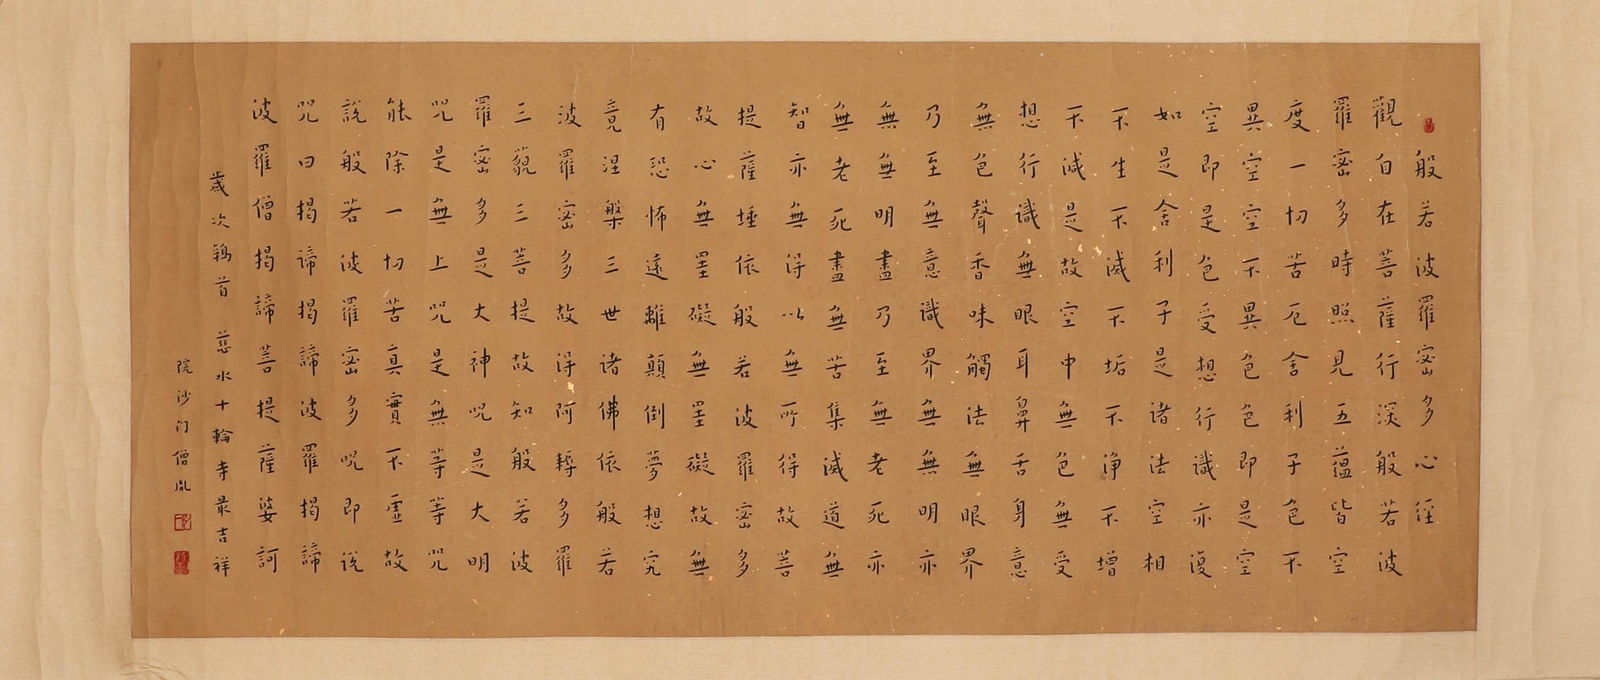 般若波羅密多心經
觀自在菩薩行深般若波
羅密多時照見五蘊皆空
度一切苦厄舍利子色不
異空空不異色色即是空
空即是色受想行識亦復
如是舍利子是諸法空相
不生不滅不垢不淨不增
不減是故空中無色無受
想行識無眼耳鼻舌身意
無色聲香味觸法無眼界
乃至無意識界無無明亦
無無明盡乃至無老死亦
無老死盡無苦集滅道無
智亦無得以無所得故菩
提薩埵依般若波羅密多
故心無罣礙無罣礙故無
有恐怖遠離顛倒夢想究
竟涅槃三世諸佛依般若
波羅密多故得阿耨多羅
三藐三菩提故知般若波
羅密多是大神咒是大明
咒是無上咒是無等等咒
能除一切苦真實不虛故
說般若波羅密多咒即說
咒曰揭諦揭諦波羅揭諦
波羅僧揭諦菩提薩婆訶
歲次鶉首 慈水十輪寺最吉祥
院沙门僧胤